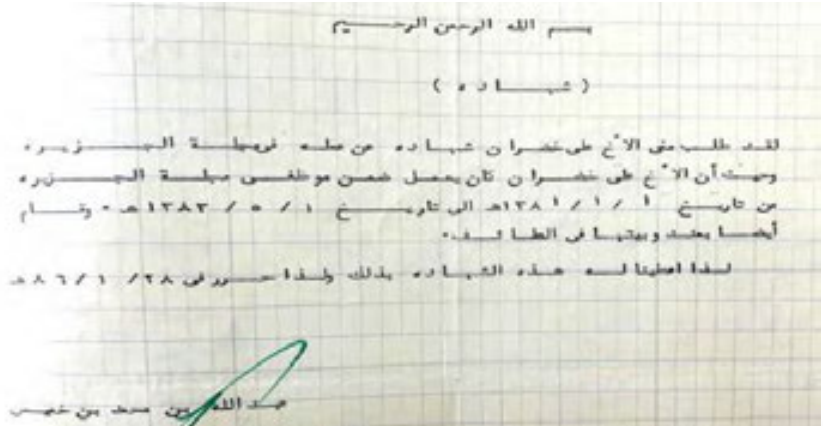 بسم الله الرحمن الرحيم
( شهاده )
لقد طلب مني الأخ علي خضران شهاده عن عمله في مجلة الجزيره
وحيث أن الأخ علي خضران كان يعمل ضمن موظفي مجلة الجزيره
من تاريخ ١ / ١ / ١٣٨١هـ الى تاريخ ١ / ٥ / ١٣٨٣هـ وقام
أيضا بمندوبيتها في الطائف.
لذا اعطينا له هذه الشهاده بذلك ولذا حرر في ٢٨ / ١ / ٨٦هـ
عبد الله بن محمد بن خميس